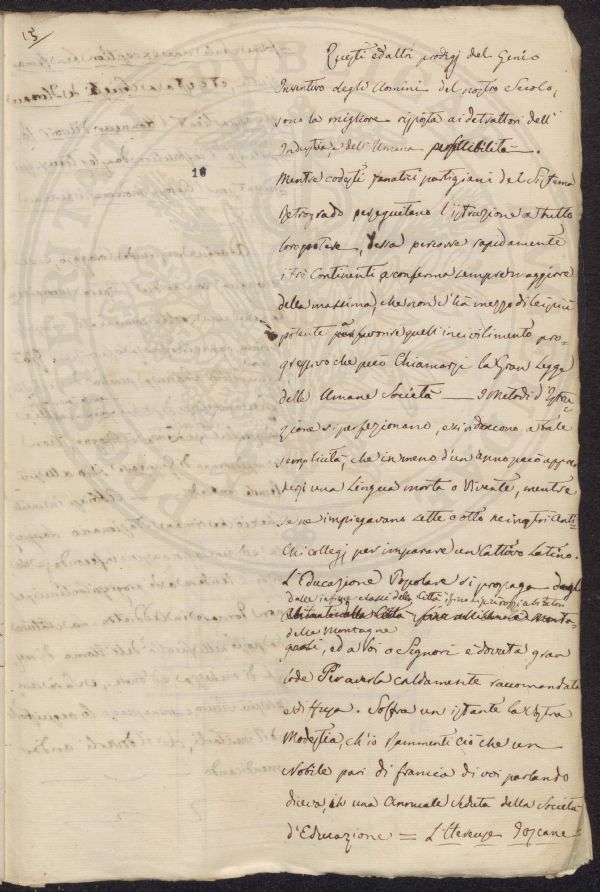 15
18
Questi ed altri prodigj del Genio
Inventivo degli Uomini del nostro Secolo,
sono la migliore risposta ai detrattori dell'
Industria, e dell'Umana perfettibilità.
Mentre codesti fanatici partigiani del Sistema
Retrogrado perseguitano l'istruzione a tutto
loro potere, dessa percorre rapidamente
i tre Continenti a conferma sempre maggiore
della massima, che non v'hà mezzo di lei più
potente per favorire quell'incivilimento pro=
gressivo che può Chiamarsi la Gran Legge
delle Umane Società — I Metodi d'Istru=
zione si perfezionano, e si riducono a tale
semplicità, che in meno d'un anno può appren
dersi una Lingua morta o Vivente, mentre
se ne impiegavano sette o otto ne' nostri Anti=
Chi collegj per imparare un Cattivo Latino.
L'Educazione Popolare si propaga dagl
dalle infime classi della Città, fino ai più rozzi abitatori
delle Montagne
ed a Voi o Signori è dovuta gran
lode Per averla caldamente raccomandata
e diffusa. Soffra un istante la Vostra
Modestia, ch'io Rammenti ciò che un
Nobile pari di francia di voi parlando
diceva, in una Annuale seduta della Società
d'Educazione = L'Heureuse Toscane